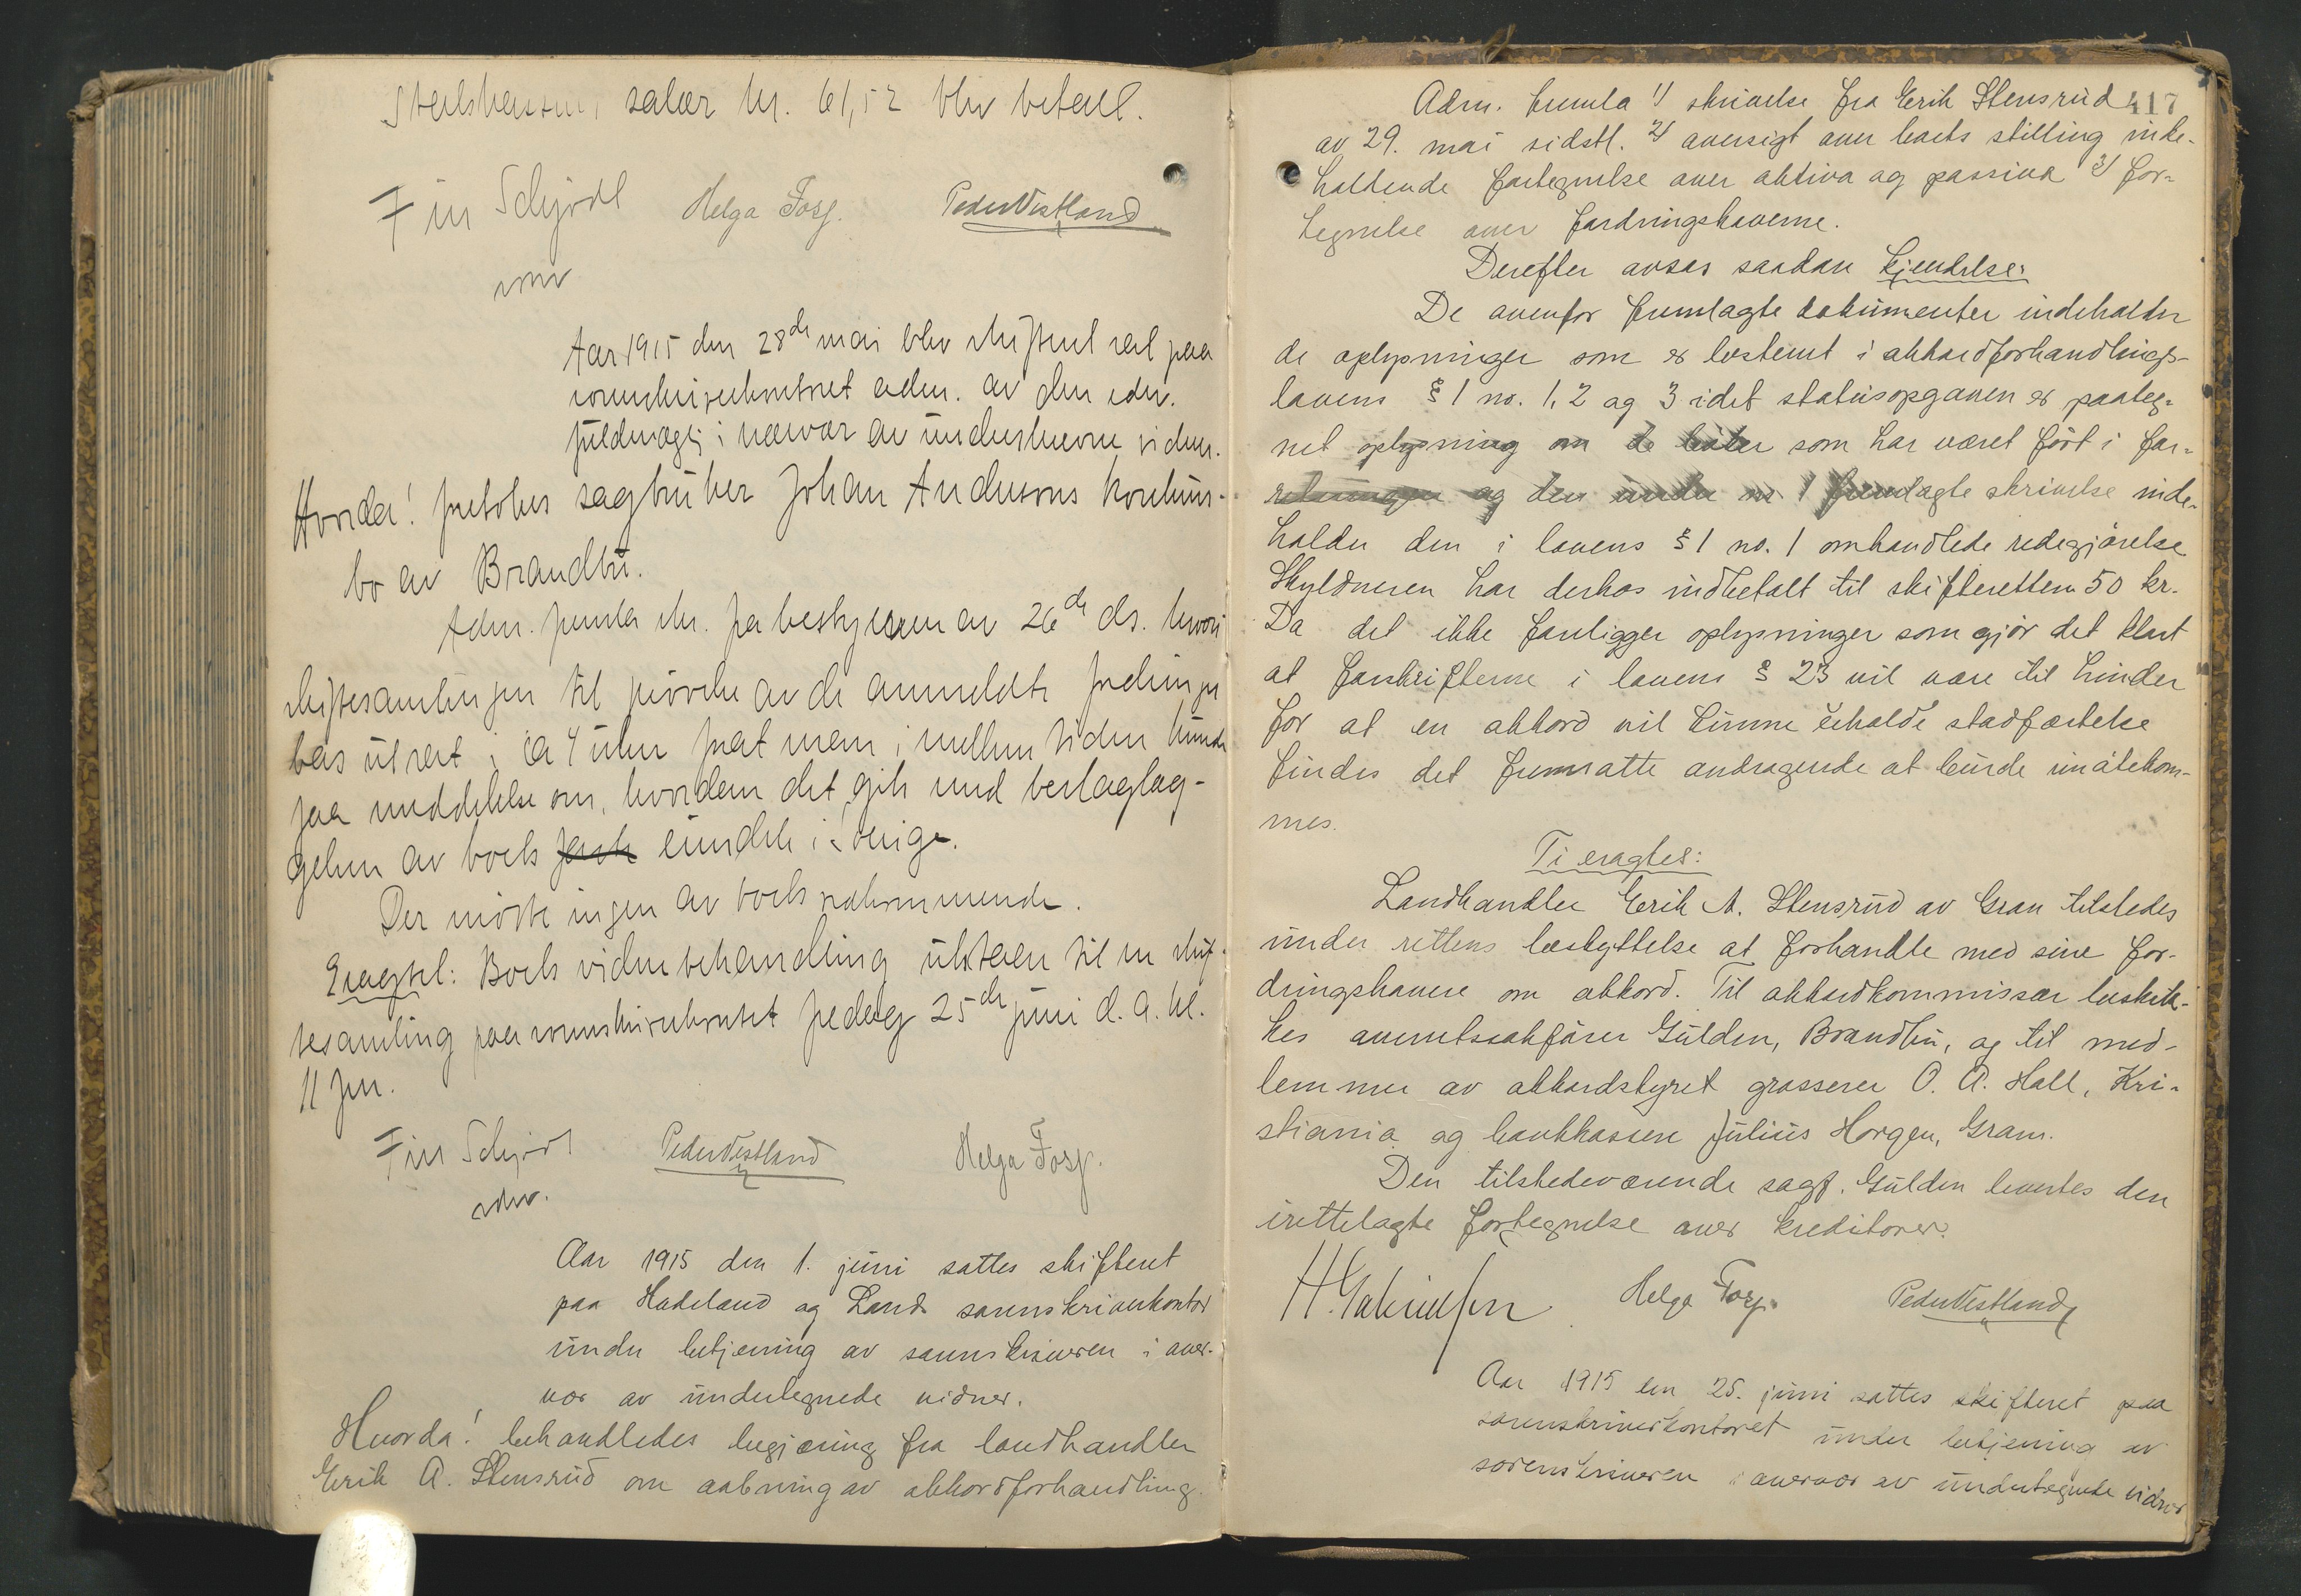 salær kr. 61,52 blev betalt.
Finn Schjødt Helga Fosz. Peder Vestland
Aar 1915 den 28de mai blev skifteret sat paa
sorenskriverkontoret adm. av den edsv.
fuldmægtig i nærvær av underskrevne vidner.
Hvorda! foretokes sagbruker Johan Andersens konkurs-
bo av Brandbu.
Adm. fremla skr. fra bestyreren av 26de ds. hvori
skiftesamlingen til prøvelse av de anmeldte fordringer
bes utsat i ca 4 uker frat mens i mellem tiden kunde
faa meddelelse om, hvordan det gik med beslaglæg-
gelsen av boets eiendele i Sverige.
Der møtte ingen av boets vedkommende.
Eragtet: Boets videre behandling utstaar til en skif-
tesamling paa sorenskriverkontoret fredag 25de juni d. a. kl.
11 fm.
Finn Schjødt Peder Vestland Helga Fosz.
edsv.
Aar 1915 den 1. juni sattes skifteret
paa Hadeland og Lands sorenskriverkontor
under betjening av sorenskriveren i over-
vær av undertegnede vidner.
Hvorda! behandledes begjæring fra landhandler
Erik A. Stensrud om aabning av akkordforhandling.
Adm. fremla 1/ skrivelse fra Erik Stensrud 417
av 29. mai sidstl. 2/ oversigt over boets stilling inde-
holdende fortegnelse over aktiva og passiva 3/ for-
tegnelse over fordringshaverne.
Derefter avsas saadan kjendelse:
De ovenfor fremlagte dokumenter indeholder
de oplysninger som er bestemt i akkordforhandlings-
lovens § 1 no. 1, 2 og 3 idet statusopgaven er paateg-
net oplysning om de bøker som har været ført i for-
retningen og den under no 1 fremlagte skrivelse inde-
holder den i lovens § 1 no. 1 omhandlede redegjørelse
Skyldneren har derhos indbetalt til skifteretten 50 kr.
Da det ikke foreligger oplysninger som gjør det klart
at forskrifterne i lovens § 23 vil være til hinder
for at en akkord vil kunne erholde stadfæstelse
findes det fremsatte andragende at burde imøtekom-
mes.
Ti eragtes:
Landhandler Erik A. Stensrud av Gran tilstedes
under rettens beskyttelse at forhandle med sine for-
dringshavere om akkord. Til akkordkommissær beskik-
kes overretssakfører Gulden, Brandbu, og til med-
lemmer av akkordstyret grosserer O. A. Hall, Kri-
stiania og bankkasserer Julius Horgen, Gran.
Den tilstedeværende sagf. Gulden levertes den
irettelagte fortegnelse over kreditorer.
Helga Fosz. Peder Vestland
Aar 1915 den 25. juni sattes skifteret paa
sorenskriverkontoret under betjening av
sorenskriveren i overvær av undertegnede vidner